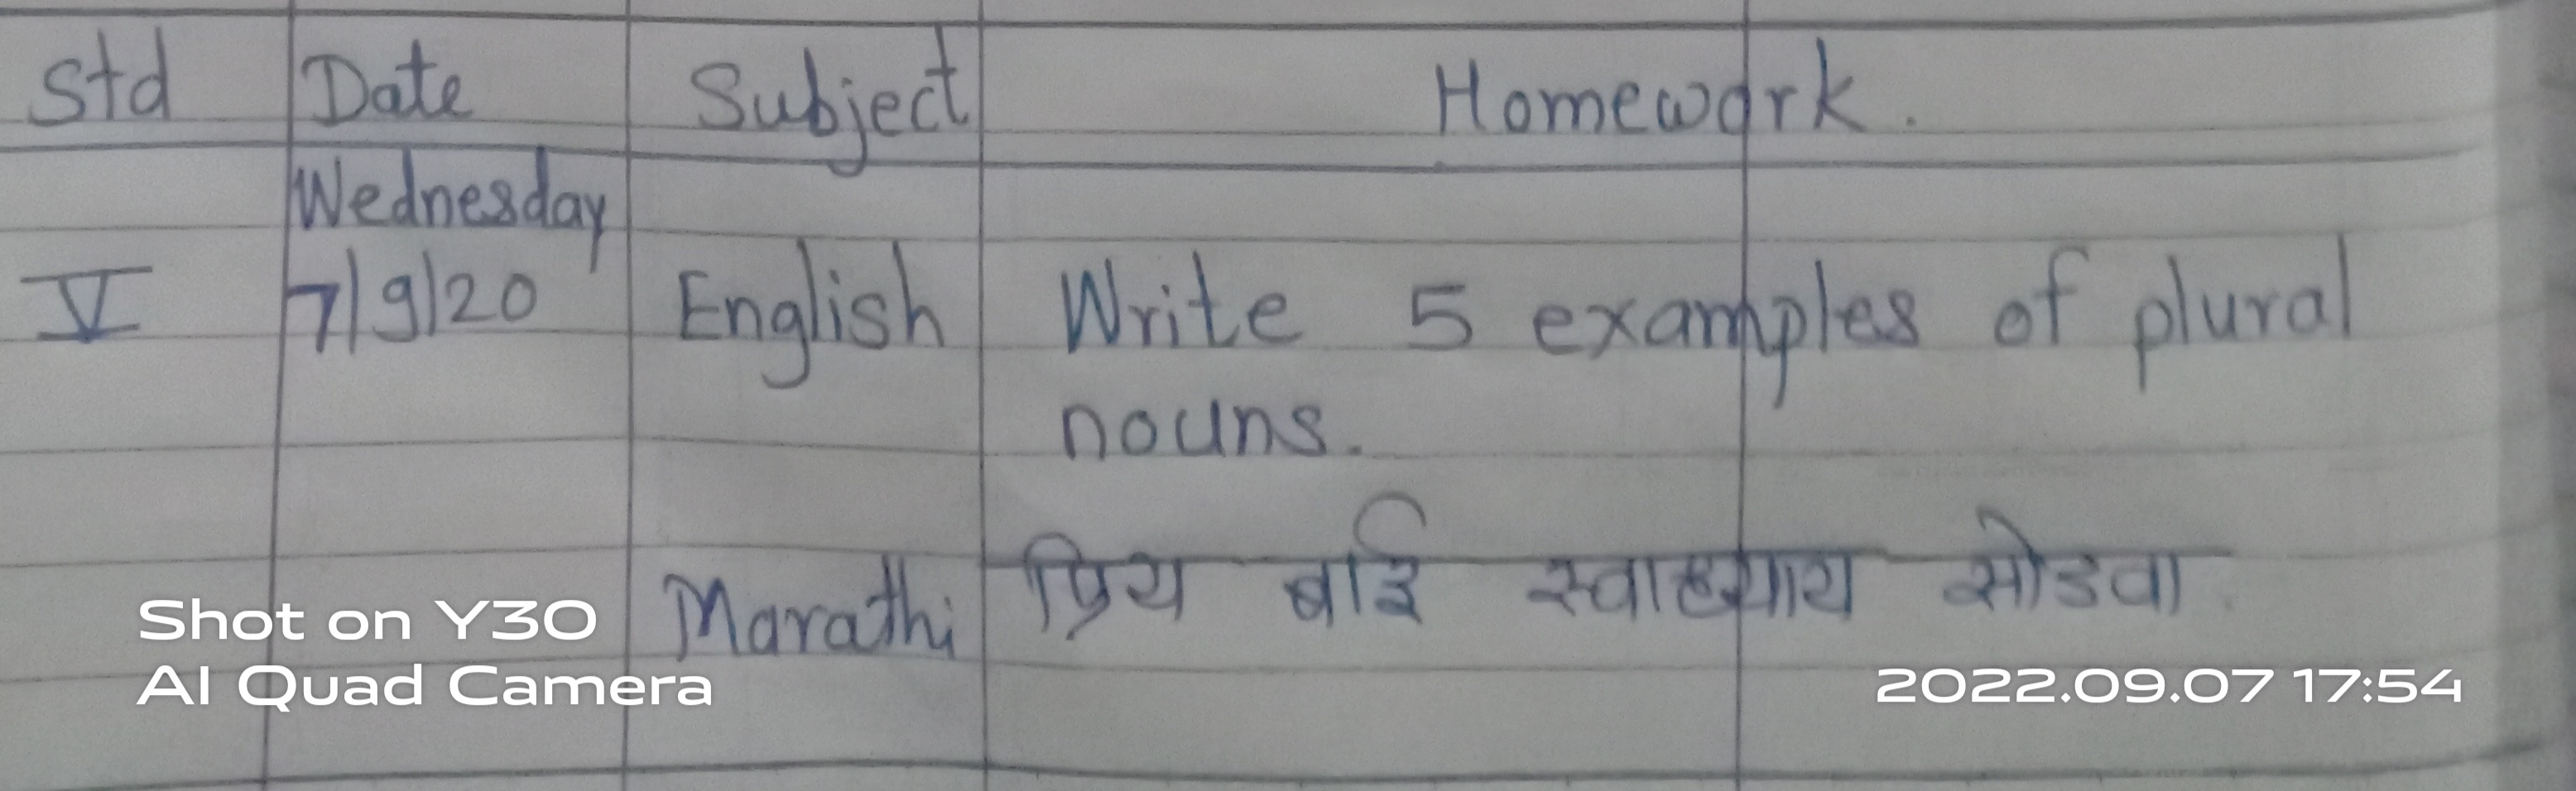 Std Date Subject Homework.
Wednesday
V 7/9/20 English Write 5 examples of plural
nouns.
Marathi प्रिय बाई स्वाध्याय सोडवा.
Shot on Y30
AI Quad Camera
2022.09.07 17:54